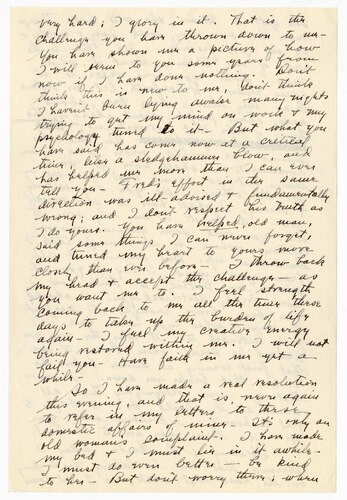 very hard; I glory in it. That is the
challenge you have thrown down to me—
You have shown me a picture of how
I will seem to you some years from
now if I have done nothing. Don't
think this is new to me, don't think
I haven't been lying awake many nights
trying to get my mind on work & my
psychology tuned to it— But what you
have said has come now at a critical
time, like a sledgehammer blow, and
has helped me more than I can ever
tell you— Fred's effort in the same
direction was ill-advised & fundamentally
wrong; and I don't respect his truth as
I do yours. You have helped, old man,
said some things I can never forget,
and tuned my heart to yours more
closely than ever before— I throw back
my head & accept the challenge— as
you want me to. I feel strength
coming back to me all the time these
days to take up the burden of life
again— I feel my creative energy
being restored within me. I will not
fail you— Have faith in me yet a
while—
So I have made a real resolution
this evening, and that is never again
to refer in my letters to these
domestic affairs of mine— It's only an
old woman's complaint. I have made
my bed & I must lie in it awhile—
I must do even better— be kind
to her— But don't worry them; when